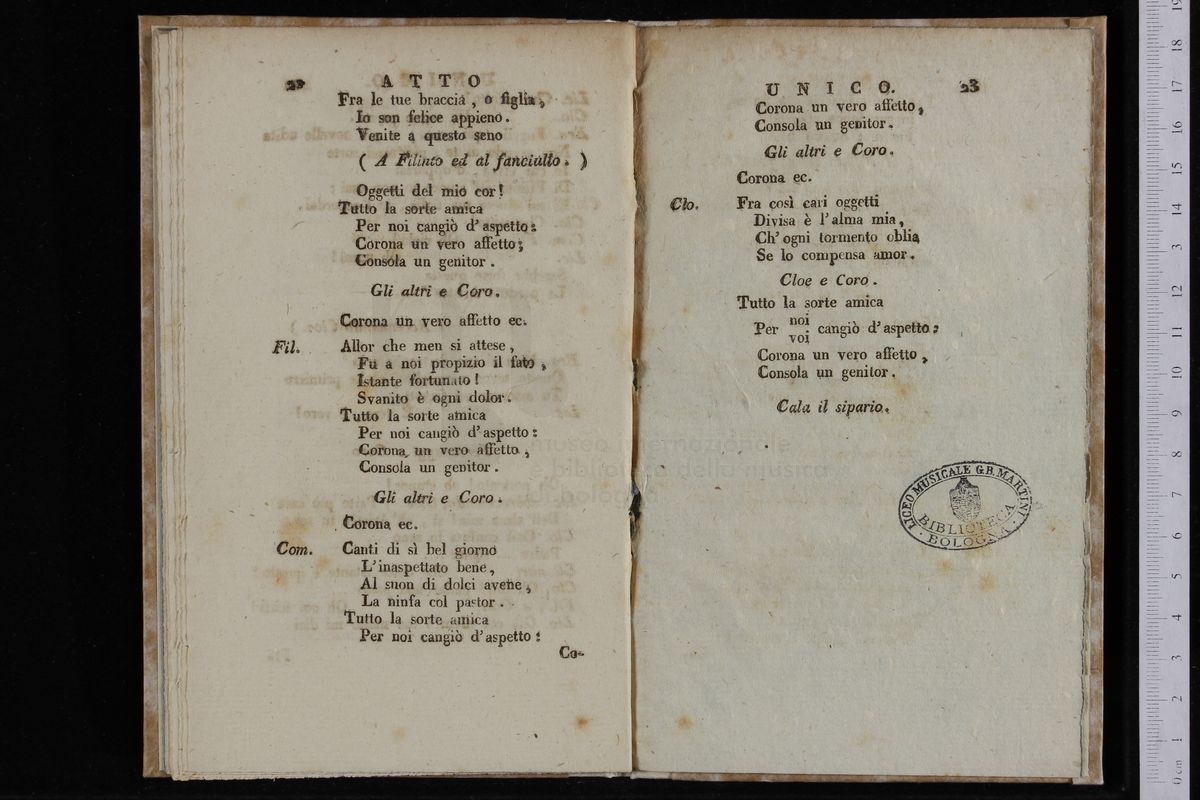 22
ATTO
Fra le tue braccia, o figlia,
Io son felice appieno.
Venite a questo seno
( A Filinto ed al fanciullo. )
Oggetti del mio cor!
Tutto la sorte amica
Per noi cangiò d'aspetto:
Corona un vero affetto;
Consola un genitor.
Gli altri e Coro.
Corona un vero affetto ec.
Fil. Allor che men si attese,
Fu a noi propizio il fato,
Istante fortunato!
Svanito è ogni dolor.
Tutto la sorte amica
Per noi cangiò d'aspetto:
Corona un vero affetto,
Consola un genitor.
Gli altri e Coro.
Corona ec.
Com. Canti di sì bel giorno
L'inaspettato bene,
Al suon di dolci avene,
La ninfa col pastor.
Tutto la sorte amica
Per noi cangiò d'aspetto:
Co-
UNICO.
23
Corona un vero affetto,
Consola un genitor.
Gli altri e Coro.
Corona ec.
Clo. Fra così cari oggetti
Divisa è l'alma mia,
Ch' ogni tormento oblia
Se lo compensa amor.
Cloe e Coro.
Tutto la sorte amica
Per noi voi cangiò d'aspetto:
Corona un vero affetto,
Consola un genitor.
Cala il sipario.
LICEO MUSICALE G.B. MARTINI
BIBLIOTECA
BOLOGNA
museo internazionale
biblioteca della musica
di bologna
0 cm 1 2 3 4 5 6 7 8 9 10 11 12 13 14 15 16 17 18 19